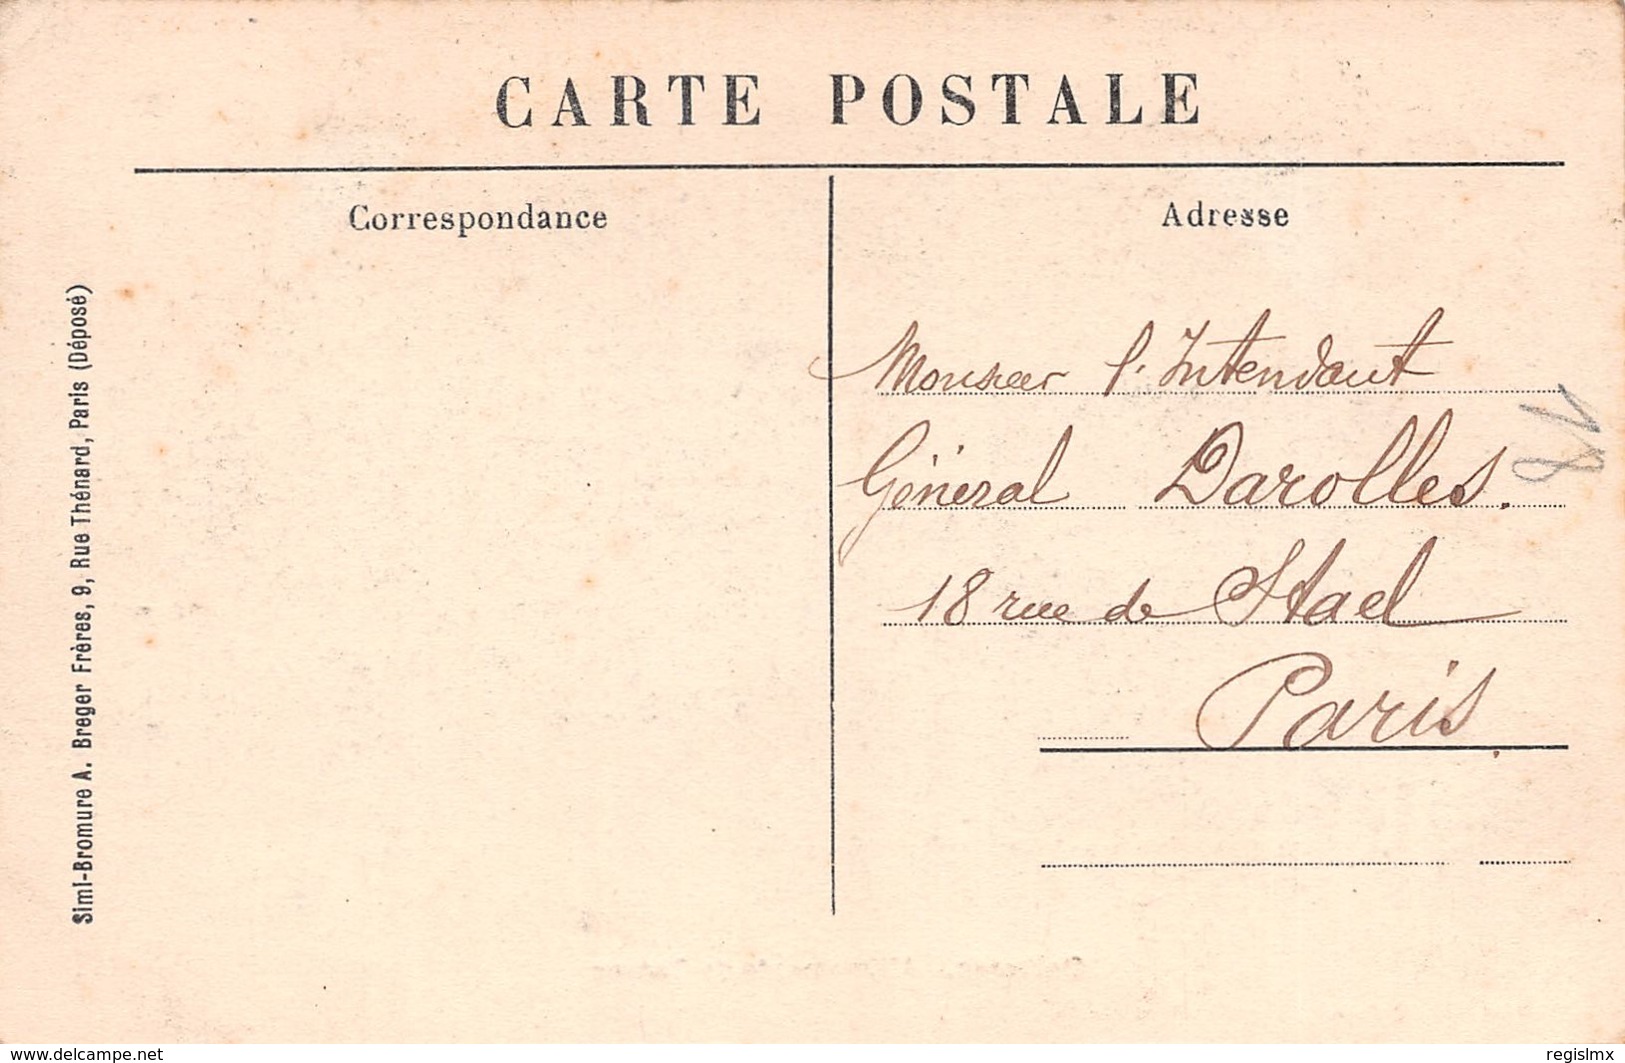 CARTE POSTALE
Correspondance
Adresse
Simi-Bromure A. Breger Frères, 9, Rue Thénard, Paris (Déposé)
Monsieur l'Intendant
Général Darolles.
18 rue de Stael
Paris.
www.delcampe.net
regislmx